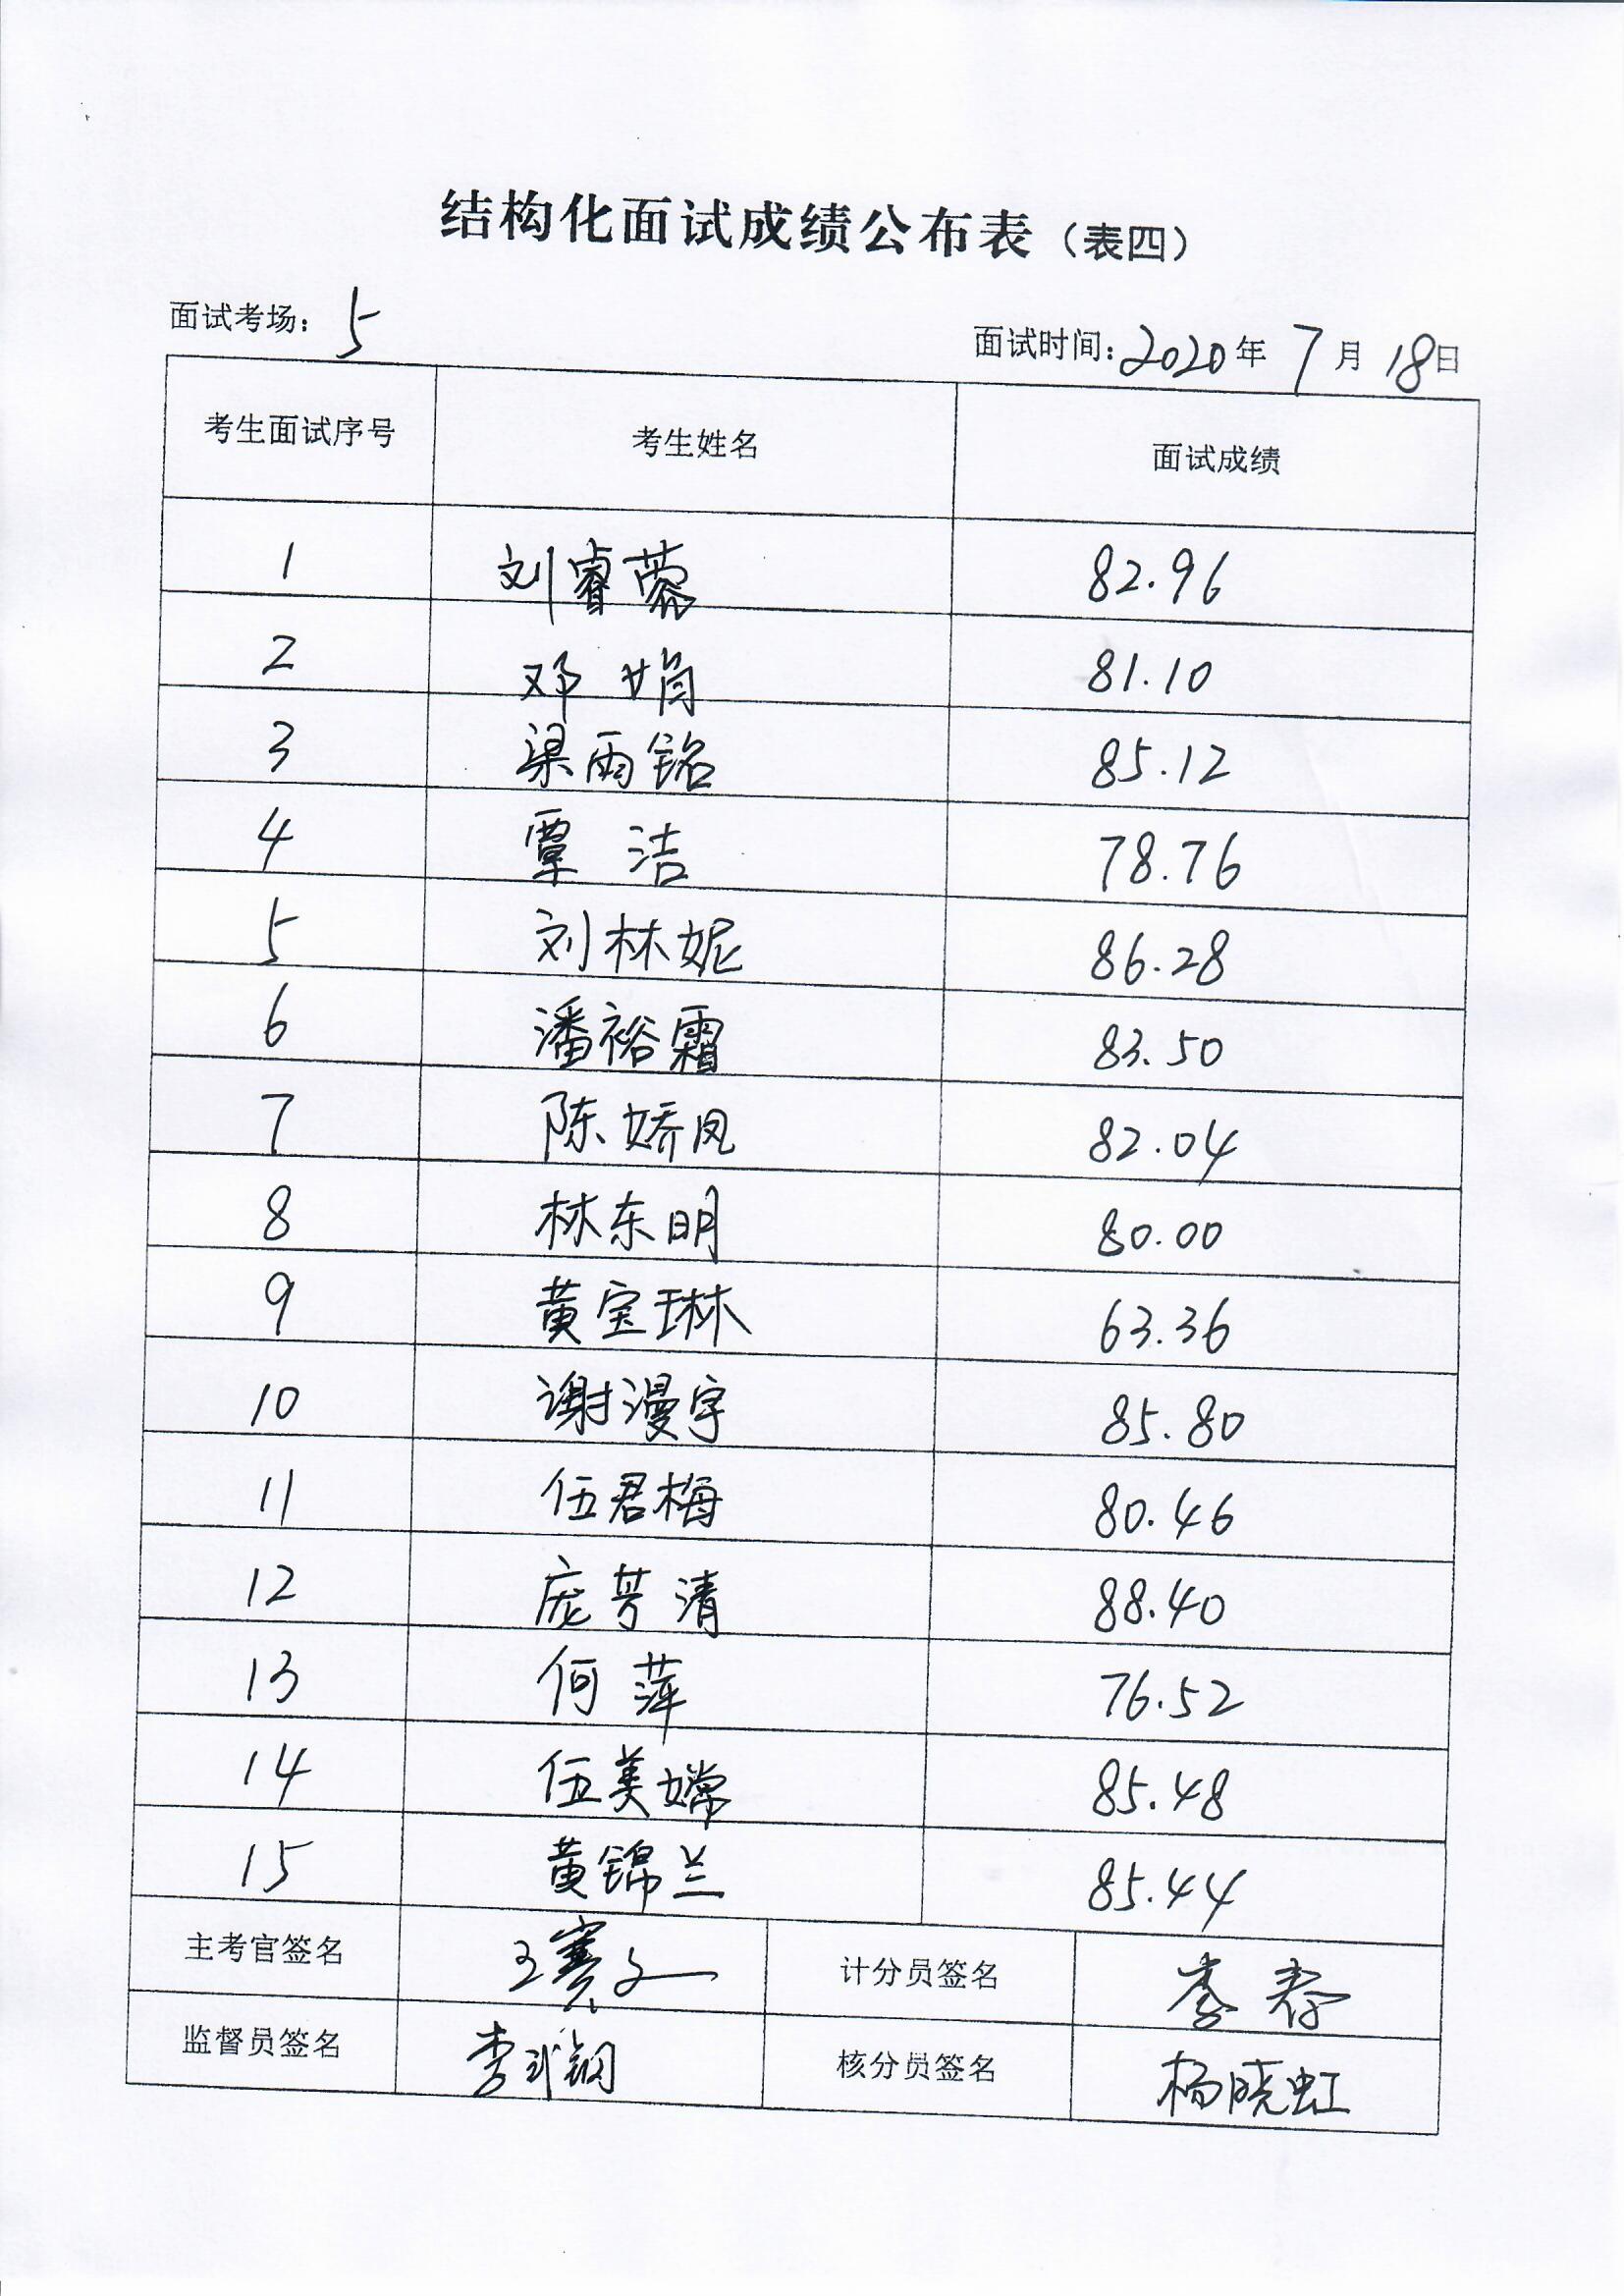 结构化面试成绩公布表（表四）
面试考场：5 面试时间：2020年7月18日
考生面试序号 考生姓名 面试成绩
1 刘睿蓉 82.96
2 邓娟 81.10
3 梁雨铭 85.12
4 覃洁 78.76
5 刘林妮 86.28
6 潘裕霜 83.50
7 陈娇凤 82.04
8 林东明 80.00
9 黄宝琳 63.36
10 谢漫宇 85.80
11 伍君梅 80.46
12 庞芳清 88.40
13 何萍 76.52
14 伍美嫦 85.48
15 黄锦兰 85.44
主考官签名 计分员签名
监督员签名 核分员签名 杨晓虹